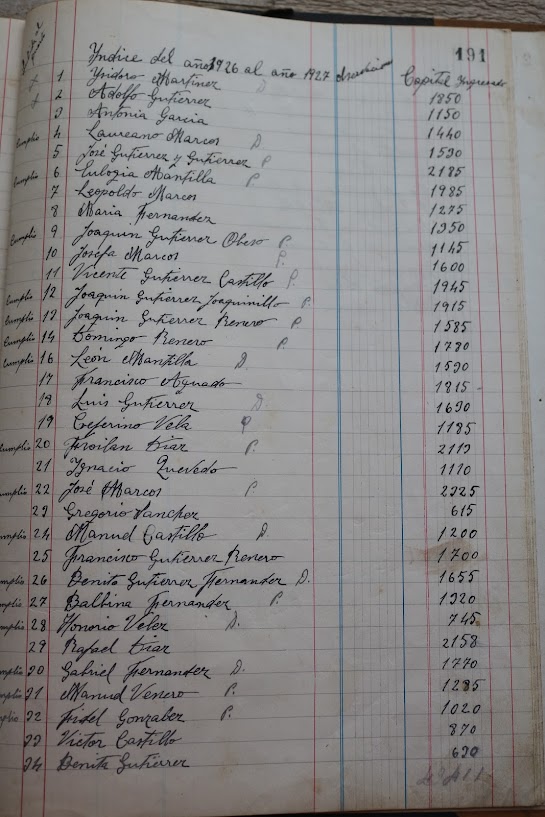 191
Yndice del año 1926 al año 1927 Capital Ingresado
x 1 Ysidoro Martinez D 1850
x 2 Adolfo Gutierrez 1150
3 Antonia Garcia 1440
Cumplio 4 Laureano Marcos D. 1530
5 José Gutierrez y Gutierrez P 2185
Cumplio 6 Eulogia Mantilla P. 1985
7 Leopoldo Marcos 1275
8 Maria Fernandez 1350
Cumplio 9 Joaquin Gutierrez Obeso P. 1145
10 Josefa Marcos P. 1600
11 Vicente Gutierrez Castillo P. 1945
Cumplio 12 Joaquin Gutierrez Joaquinillo P. 1915
Cumplio 13 Joaquin Gutierrez Renero P. 1585
Cumplio 14 Domingo Renero P. 1730
Cumplio 16 León Mantilla D. 1530
17 Francisco Aguado 1815
18 Luis Gutierrez D. 1630
19 Ceferino Vela P 1185
Cumplio 20 Froilan Diaz P. 2113
21 Ignacio Quevedo 1110
Cumplio 22 José Marcos P. 2325
23 Gregorio Sanchez 615
Cumplio 24 Manuel Castillo D. 1200
25 Francisco Gutierrez Renero 1700
mplio 26 Benito Gutierrez Fernandez D. 1655
mplio 27 Balbina Fernandez P. 1320
mplio 28 Honorio Velez D. 745
29 Rafael Diaz 2158
mplio 30 Gabriel Fernandez D. 1770
mplio 31 Manuel Venero P. 1285
plio 32 Fidel Gonzalez P. 1020
33 Victor Castillo 870
34 Benita Gutierrez 630